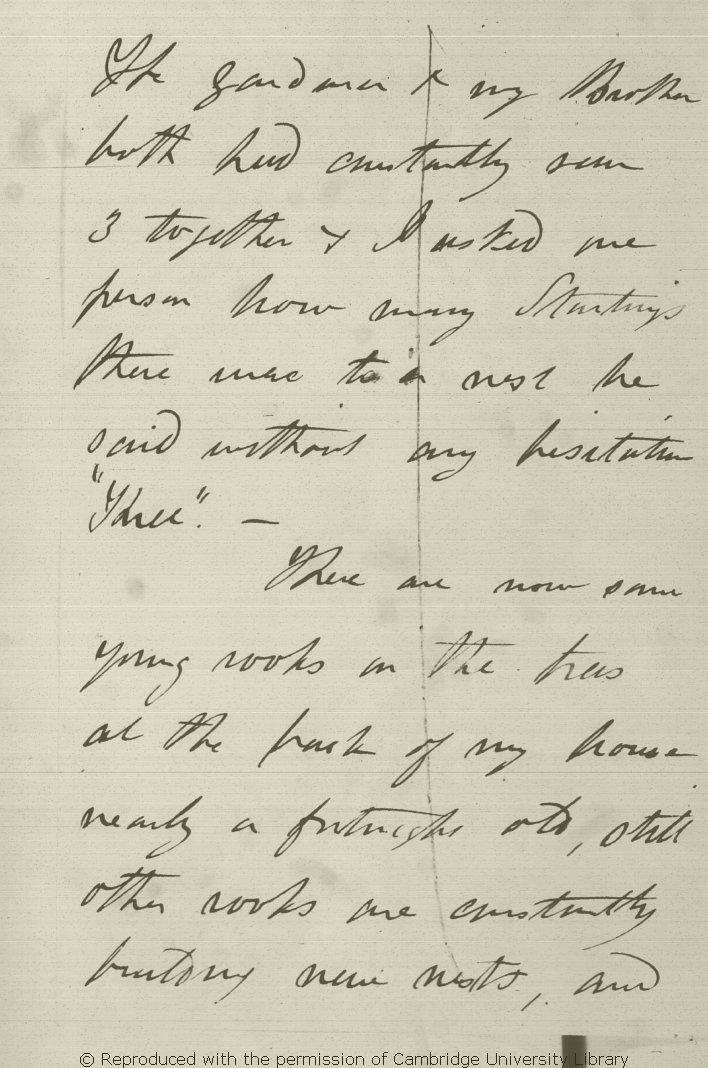 The gardener & my Brother
both had constantly seen
3 together & I asked one
person how many Starlings
there were to a nest he
said without any hesitation
"Three". —
There are now some
young rooks in the trees
at the back of my house
nearly a fortnight old, still
other rooks are constantly
building new nests, and
© Reproduced with the permission of Cambridge University Library